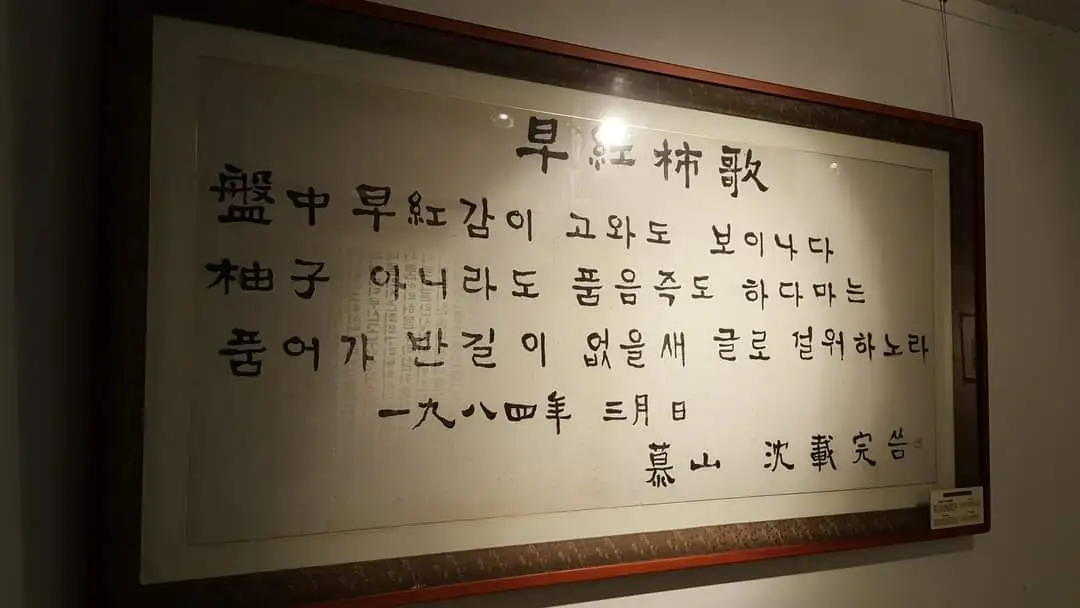 早紅柿歌
盤中 早紅감이 고와도 보이나다
柚子 아니라도 품음즉도 하다마는
품어가 반길 이 없을새 글로 설워하노라
一九八四年 三月 日
慕山 沈載完 씀